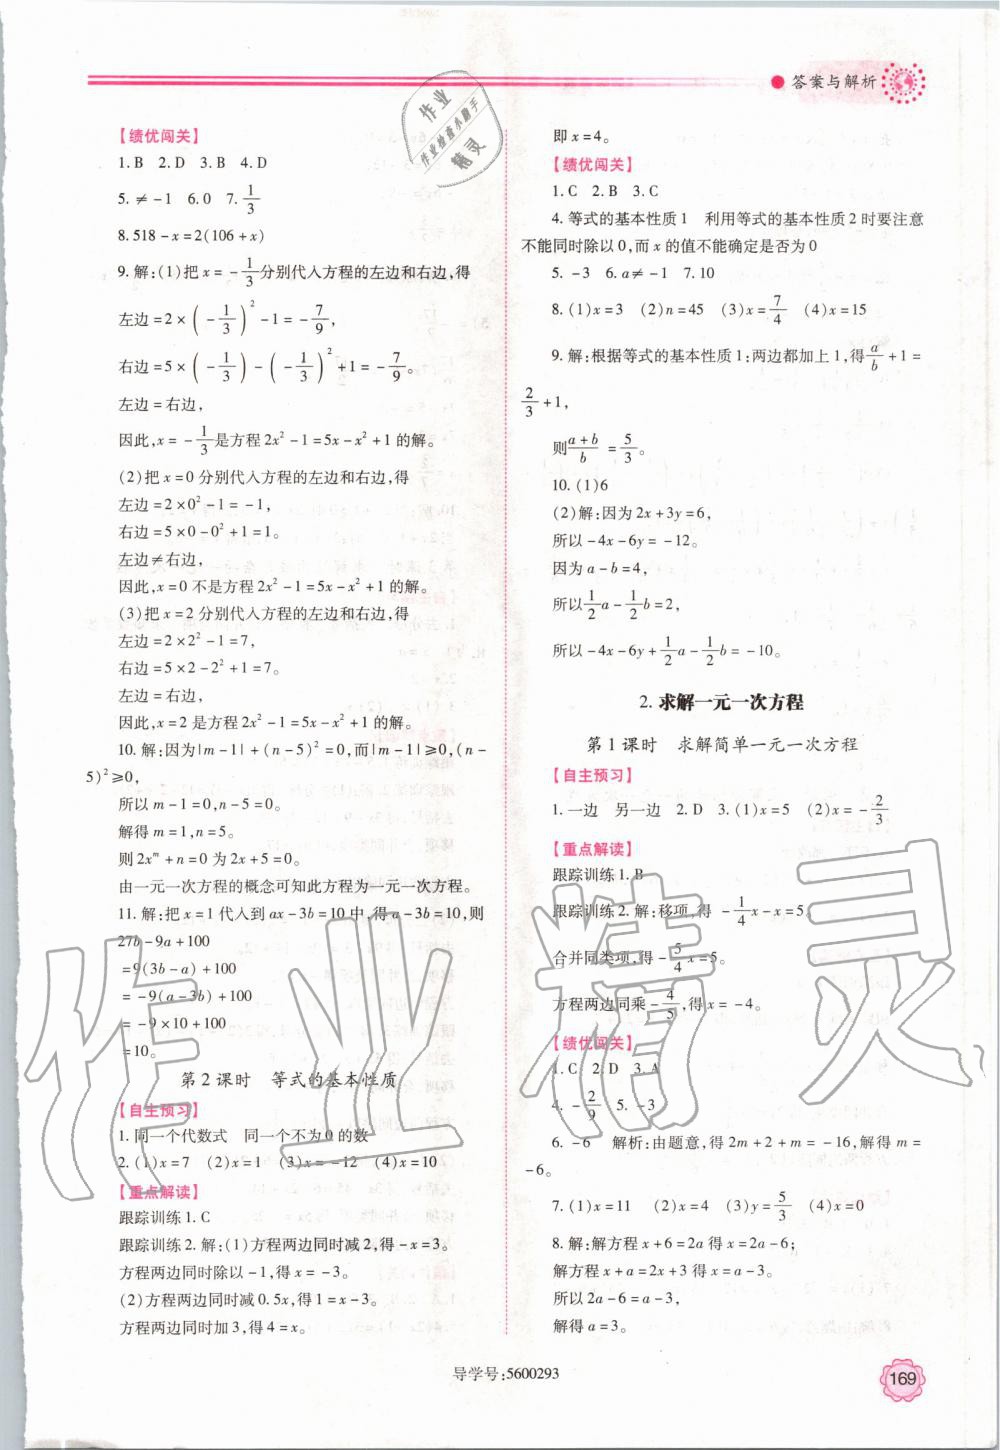 答案与解析
【绩优闯关】
1.B 2.D 3.B 4.D
5.≠-1 6.0 7.1/3
8.518-x=2(106+x)
9.解:(1)把x=-1/3分别代入方程的左边和右边,得
左边=2×(-1/3)²-1=-7/9,
右边=5×(-1/3)-(-1/3)²+1=-7/9。
左边=右边,
因此,x=-1/3是方程2x²-1=5x-x²+1的解。
(2)把x=0分别代入方程的左边和右边,得
左边=2×0²-1=-1,
右边=5×0-0²+1=1。
左边≠右边,
因此,x=0不是方程2x²-1=5x-x²+1的解。
(3)把x=2分别代入方程的左边和右边,得
左边=2×2²-1=7,
右边=5×2-2²+1=7。
左边=右边,
因此,x=2是方程2x²-1=5x-x²+1的解。
10.解:因为|m-1|+(n-5)²=0,而|m-1|≥0,(n-
5)²≥0,
所以m-1=0,n-5=0。
解得m=1,n=5。
则2xᵐ+n=0为2x+5=0。
由一元一次方程的概念可知此方程为一元一次方程。
11.解:把x=1代入到ax-3b=10中,得a-3b=10,则
27b-9a+100
=9(3b-a)+100
=-9(a-3b)+100
=-9×10+100
=10。
第2课时 等式的基本性质
【自主预习】
1.同一个代数式 同一个不为0的数
2.(1)x=7 (2)x=1 (3)x=-12 (4)x=10
【重点解读】
跟踪训练1.C
跟踪训练2.解:(1)方程两边同时减2,得-x=3。
方程两边同时除以-1,得x=-3。
(2)方程两边同时减0.5x,得1=x-3。
方程两边同时加3,得4=x。
即x=4。
【绩优闯关】
1.C 2.B 3.C
4.等式的基本性质1 利用等式的基本性质2时要注意
不能同时除以0,而x的值不能确定是否为0
5.-3 6.a≠-1 7.10
8.(1)x=3 (2)n=45 (3)x=7/4 (4)x=15
9.解:根据等式的基本性质1:两边都加上1,得a/b+1=
2/3+1,
则(a+b)/b=5/3。
10.(1)6
(2)解:因为2x+3y=6,
所以-4x-6y=-12。
因为a-b=4,
所以1/2a-1/2b=2,
所以-4x-6y+1/2a-1/2b=-10。
2.求解一元一次方程
第1课时 求解简单一元一次方程
【自主预习】
1.一边 另一边 2.D 3.(1)x=5 (2)x=-2/3
【重点解读】
跟踪训练1.B
跟踪训练2.解:移项,得-1/4x-x=5。
合并同类项,得-5/4x=5。
方程两边同乘-4/5,得x=-4。
【绩优闯关】
1.C 2.D 3.A
4.-2/9 5.-3
6.-6 解析:由题意,得2m+2+m=-16,解得m=
-6。
7.(1)x=11 (2)x=4 (3)y=5/3 (4)x=0
8.解:解方程x+6=2a得x=2a-6;
解方程x+a=2x+3得x=a-3。
所以2a-6=a-3,
解得a=3。
导学号:5600293
169
作业
作业检查小助手
精灵
作业精灵